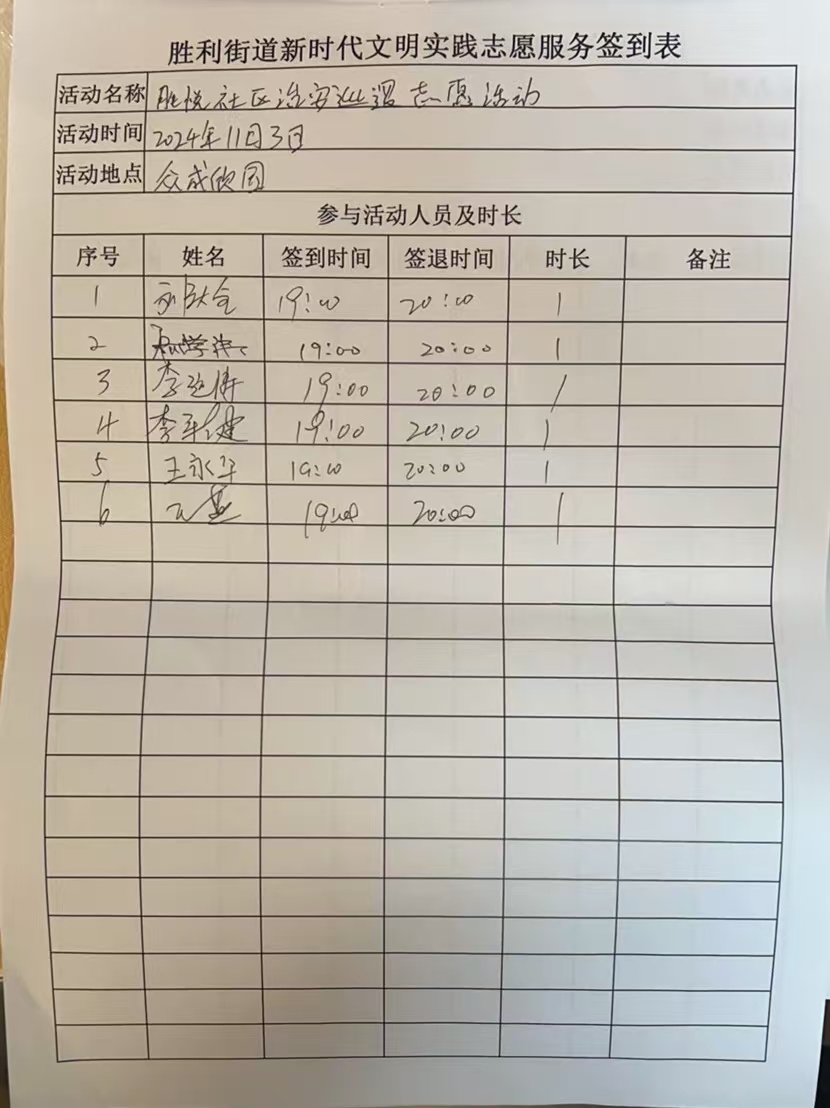 胜利街道新时代文明实践志愿服务签到表
活动名称 胜悦社区治安巡逻志愿活动
活动时间 2024年11月3日
活动地点 众成欣园
参与活动人员及时长
序号 姓名 签到时间 签退时间 时长 备注
1 19:00 20:00 1
2 19:00 20:00 1
3 李 19:00 20:00 1
4 李 19:00 20:00 1
5 王永华 19:00 20:00 1
6 19:00 20:00 1